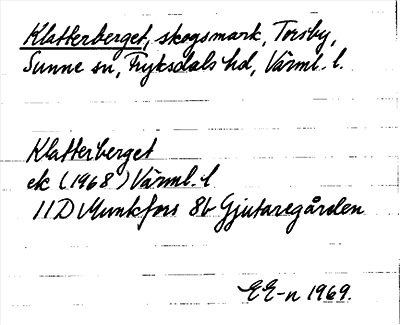 Klatterberget, skogsmark, Torsby,
Sunne sn, Fryksdals hd, Värml. l.
Klatterberget
ek (1968) Värml. l
11D Munkfors 8b Gjutaregården
EE-n 1969.